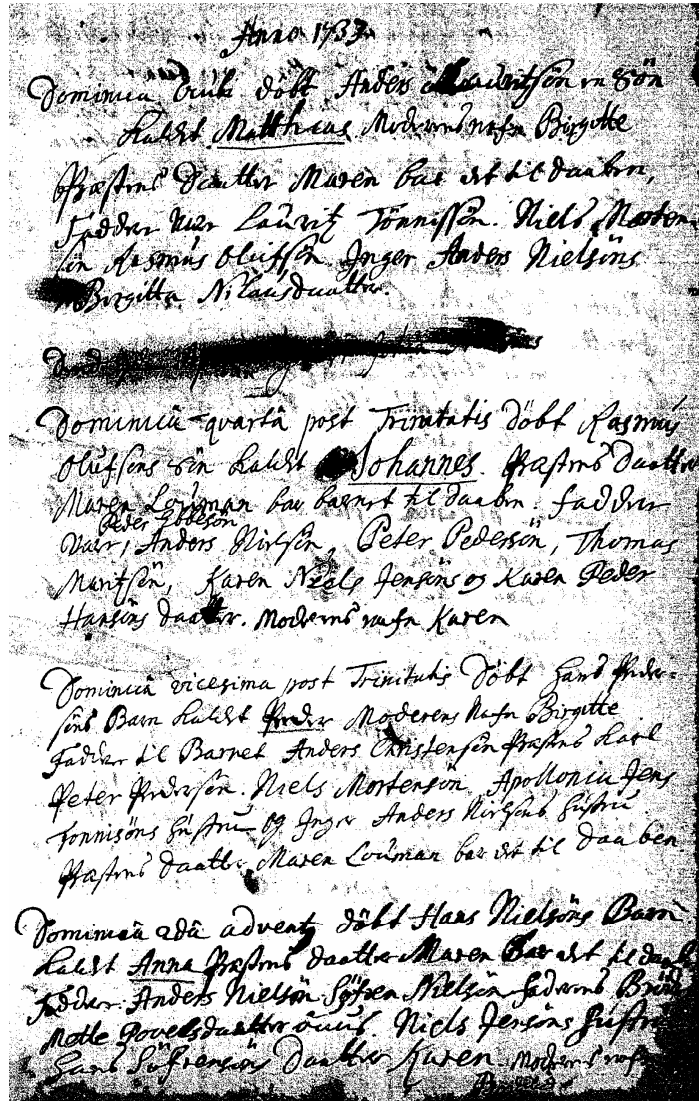 Anno 1733
Dominica döbt Anders Lauritsön en Sön
kaldt Matthias Moderens nafn Birgitte
Præstens Daatter Maren bar det til daaben,
Fadder var Lauritz Tönnissön. Niels Morten
sön Rasmus Olufsön Inger Anders Nielsöns
Birgitta Nilausdaatter.
Dominicâ quartâ post Trinitatis döbt Rasmus
Olufsens Sön kaldt Johannes. Præstens Daatter
Maren Louman bar barnet til daaben. Fadder
Peder Ebbesön
var, Anders Nielsön, Peter Pedersön, Thomas
Maritsön, Karen Niels Jensöns og Karen Peder
Hansöns daatter. Moderens nafn Karen
Dominicâ vicesima post Trinitatis döbt Hans Peder-
söns Barn kaldt Peder Moderens Nafn Birgitte
Fadder til Barnet Anders Christensön Præstens karl
Peter Pedersön. Niels Mortensön. Apollonia Jens
Tonnisöns Hustru og Inger Anders Nielsöns Hustru
Præstens daatter Maren Louman bar det til daaben
Dominicâ 2dâ advent döbt Hans Nielsöns Barn
kaldt Anna Præstens daatter Maren Bar det til daab
Fadder. Anders Nielsön Söfren Nielsön Faderens
Mette Povelsdaatter Niels Jensöns Hustru
Hans Söfrensöns Daatter Karen Moderens nafn